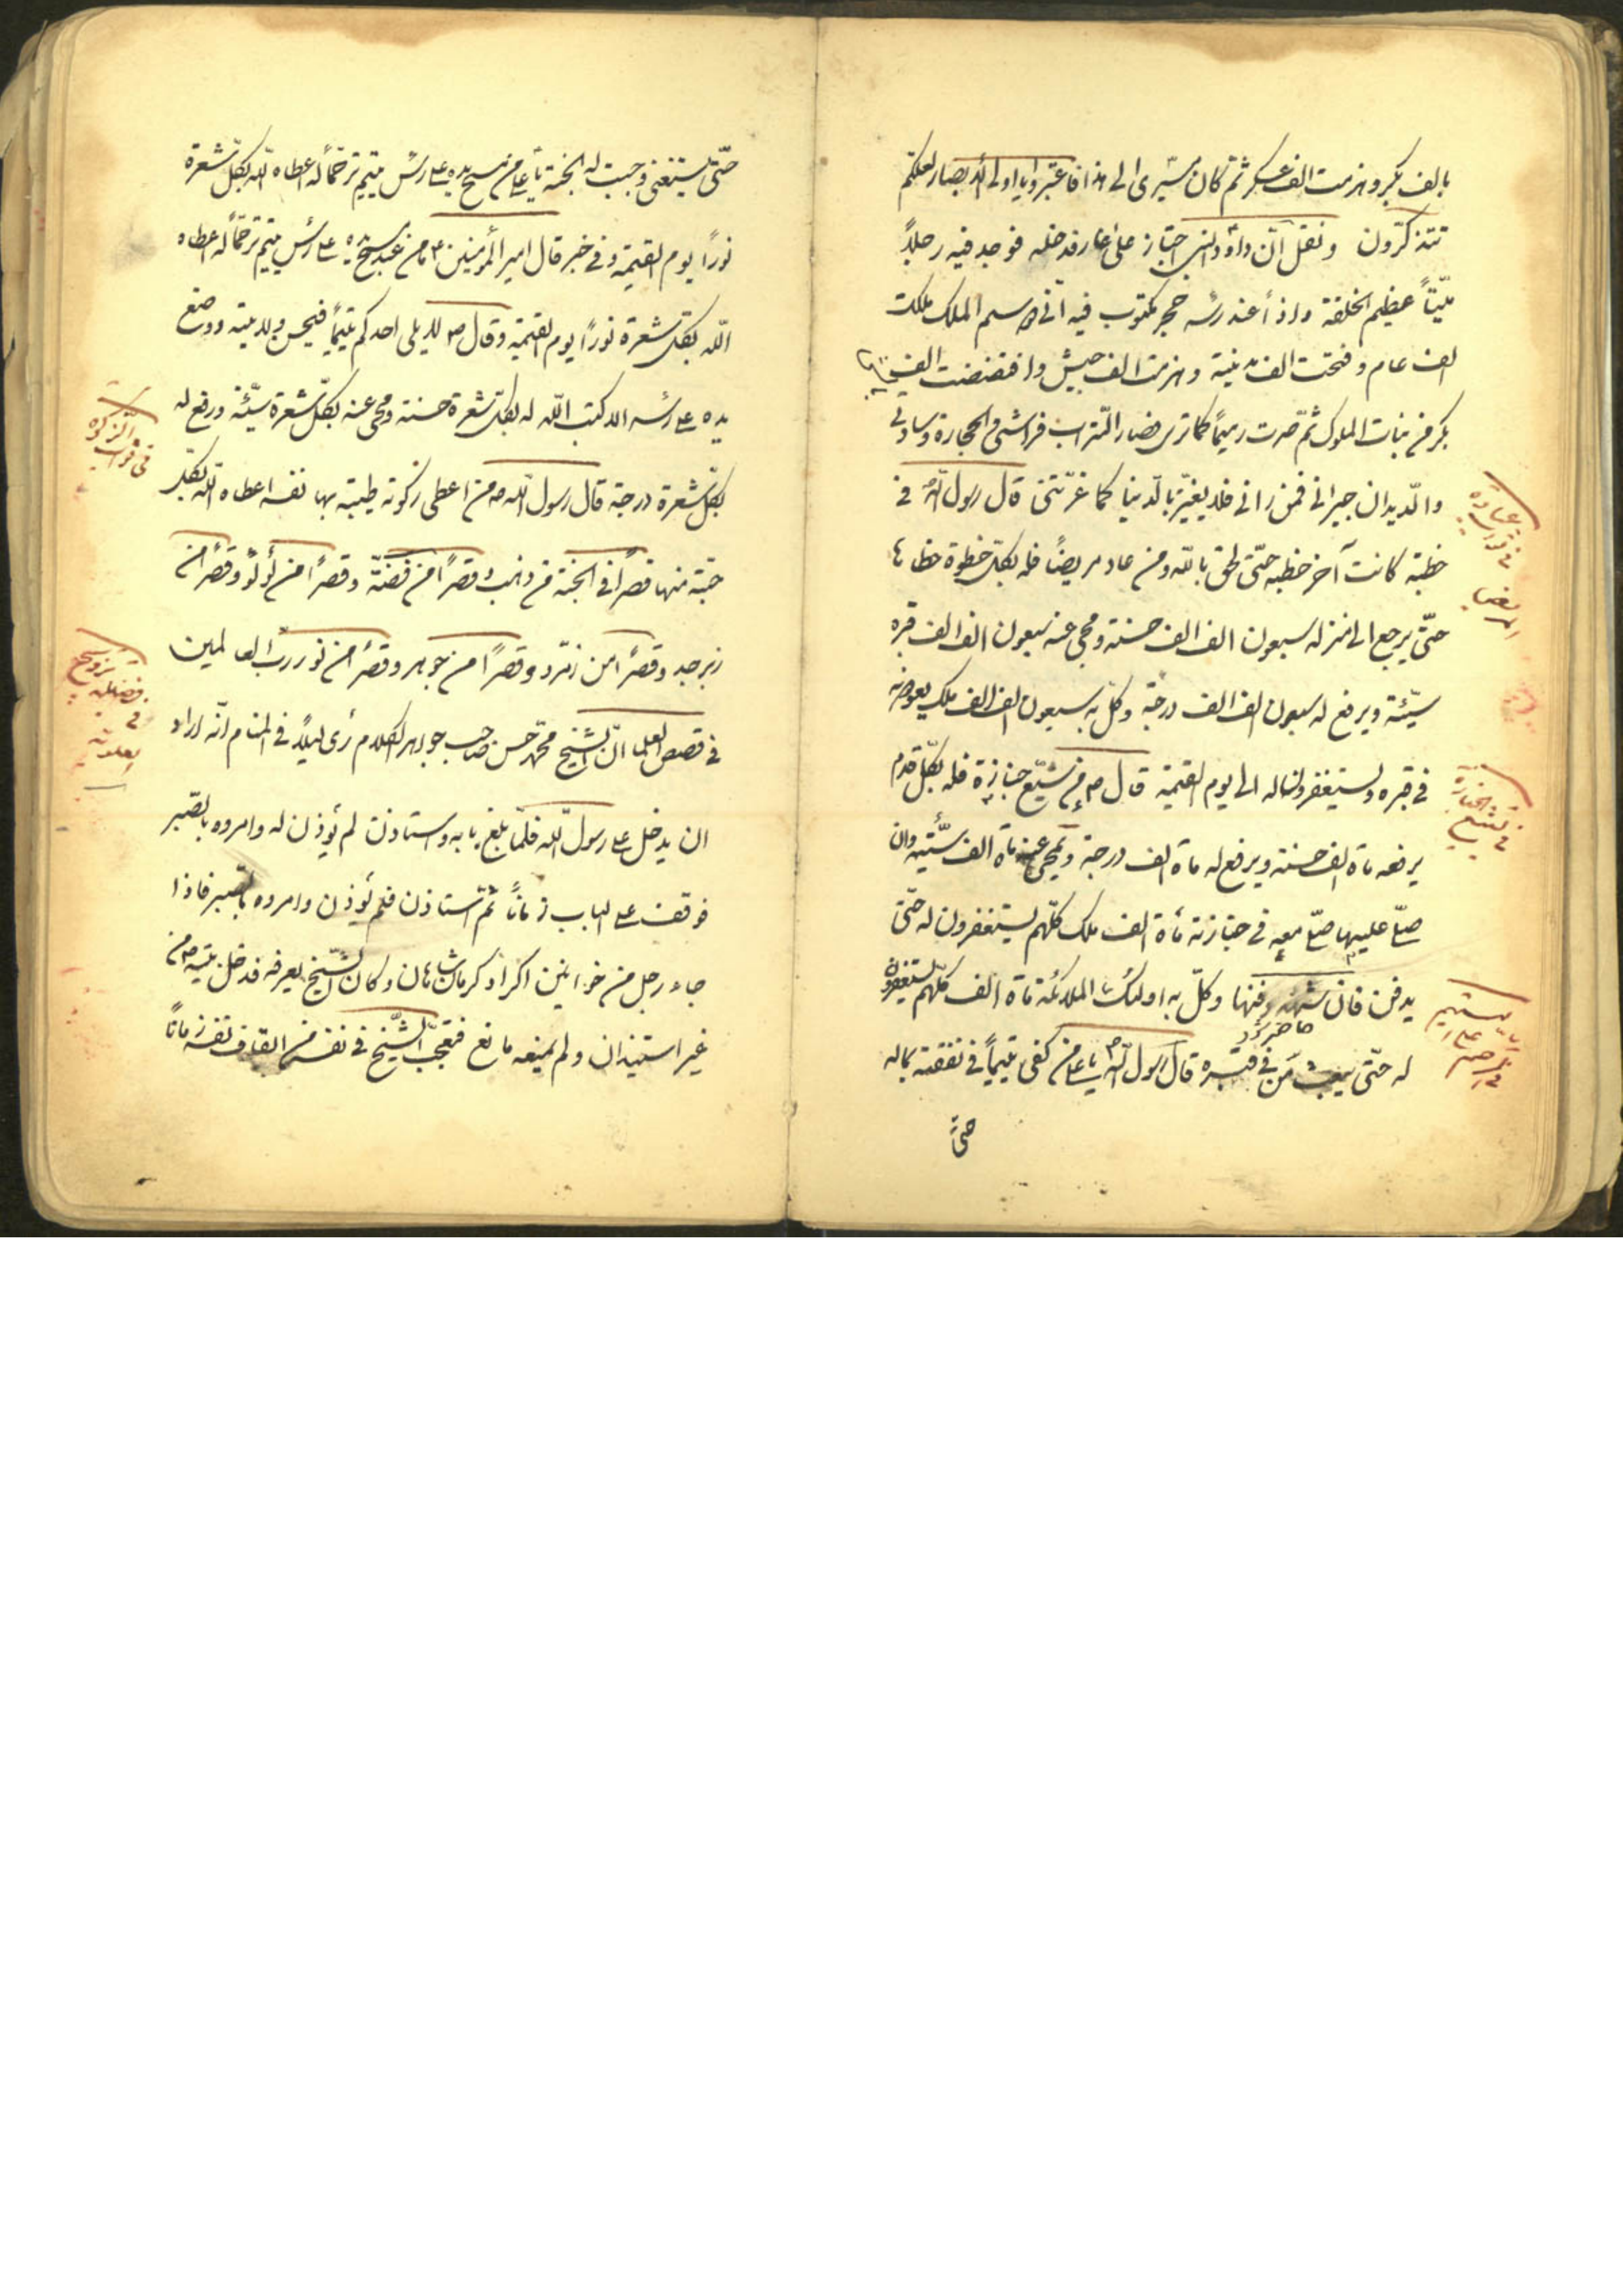 بالف بكر وهزمت الف عسكر ثم كان مسيرى الى هذا فاعتبروا يا اولى الابصار لعلكم
تتذكّرون ونقل انّ داود النبى اجتاز على غار فدخله فوجد فيه رجلاً
ميّتاً عظيم الخلقة واذاً عند رأسه حجر مكتوب فيه انّى وسيم الملك ملكت
الف عام وفتحت الف مدينة وهزمت الف جيش وافتضضت الف
بكر من بنات الملوك ثمّ صرت رميماً كما ترى فصار التّراب فراشى والحجارة وسادتى
والدّيدان جيرانى فمن رانى فلا يغترّ بالدّنيا كما غرّتنى قال رسول اللّه فى
خطبة كانت آخر خطبه حتّى لحق باللّه ومن عاد مريضاً فله بكلّ خطوة خطاها
حتّى يرجع الى منزله سبعون الف الف حسنة ومحى عنه سبعون الف الف
سيّئة ويرفع له سبعون الف الف درجة وكلّ به سبعون الف الف ملك يعودونه
فى قبره ويستغفرون له الى يوم القيمة قال ص من شيّع جنازة فله بكلّ قدم
يرفعه مأة الف حسنة ويرفع له مأة الف درجة ويمحى عنه مأة الف سيّئة وان
صلّى عليها صلّى معه فى جنازته مأة الف ملك كلّهم يستغفرون له حتّى
يدفن فان شهد دفنها وكلّ به اولئك الملائكة مأة الف كلّهم يستغفرون
حاضر شد
له حتّى يبعث من فى قبره قال رسول اللّه ص يا على من كفى يتيماً فى نفقته بماله
حتّى
فى ثواب عيادة
المريض
فى تشييع الجنازة
فى الترحم على اليتيم
حتّى يستغنى وجبت له الجنة يا على من مسح يده على رأس يتيم ترحّماً له اعطاه اللّه بكلّ شعرة
نوراً يوم القيمة وفى خبر قال امير المؤمنين ع ما من عبد مسح يده على رأس يتيم ترحّماً له اعطاه
اللّه بكلّ شعرة نوراً يوم القيمة وقال ص لا يلى احدكم يتيماً فيحسن ولايته ووضع
يده على رأسه الا كتب اللّه له بكلّ شعرة حسنة ومحى عنه بكلّ شعرة سيّئة ورفع له
بكلّ شعرة درجة قال رسول اللّه ص من اعطى زكوته طيبة بها نفسه اعطاه اللّه بكلّ
حبّة منها قصراً فى الجنة من ذهب وقصراً من فضّة وقصراً من لؤلؤ وقصراً من
زبرجد وقصراً من زمرّد وقصراً من جوهر وقصراً من نور ربّ العالمين
فى قصص العلما انّ الشيخ محمّد حسن صاحب جواهر الكلام رأى ليلاً فى المنام انّه اراد
ان يدخل على رسول اللّه فلمّا بلغ بابه واستاذن لم يؤذن له وامروه بالصّبر
فوقف على الباب زماناً ثمّ استاذن فلم يؤذن وامروه بالصّبر فاذا
جاء رجل من خوانين اكراد كرمانشاهان وكان الشّيخ يعرفه فدخل بيته ص من
غير استيذان ولم يمنعه مانع فتعجّب الشّيخ فى نفسه من ايقاف نفسه زماناً
فى ثواب الزكوة
فى فضيلة ترويج